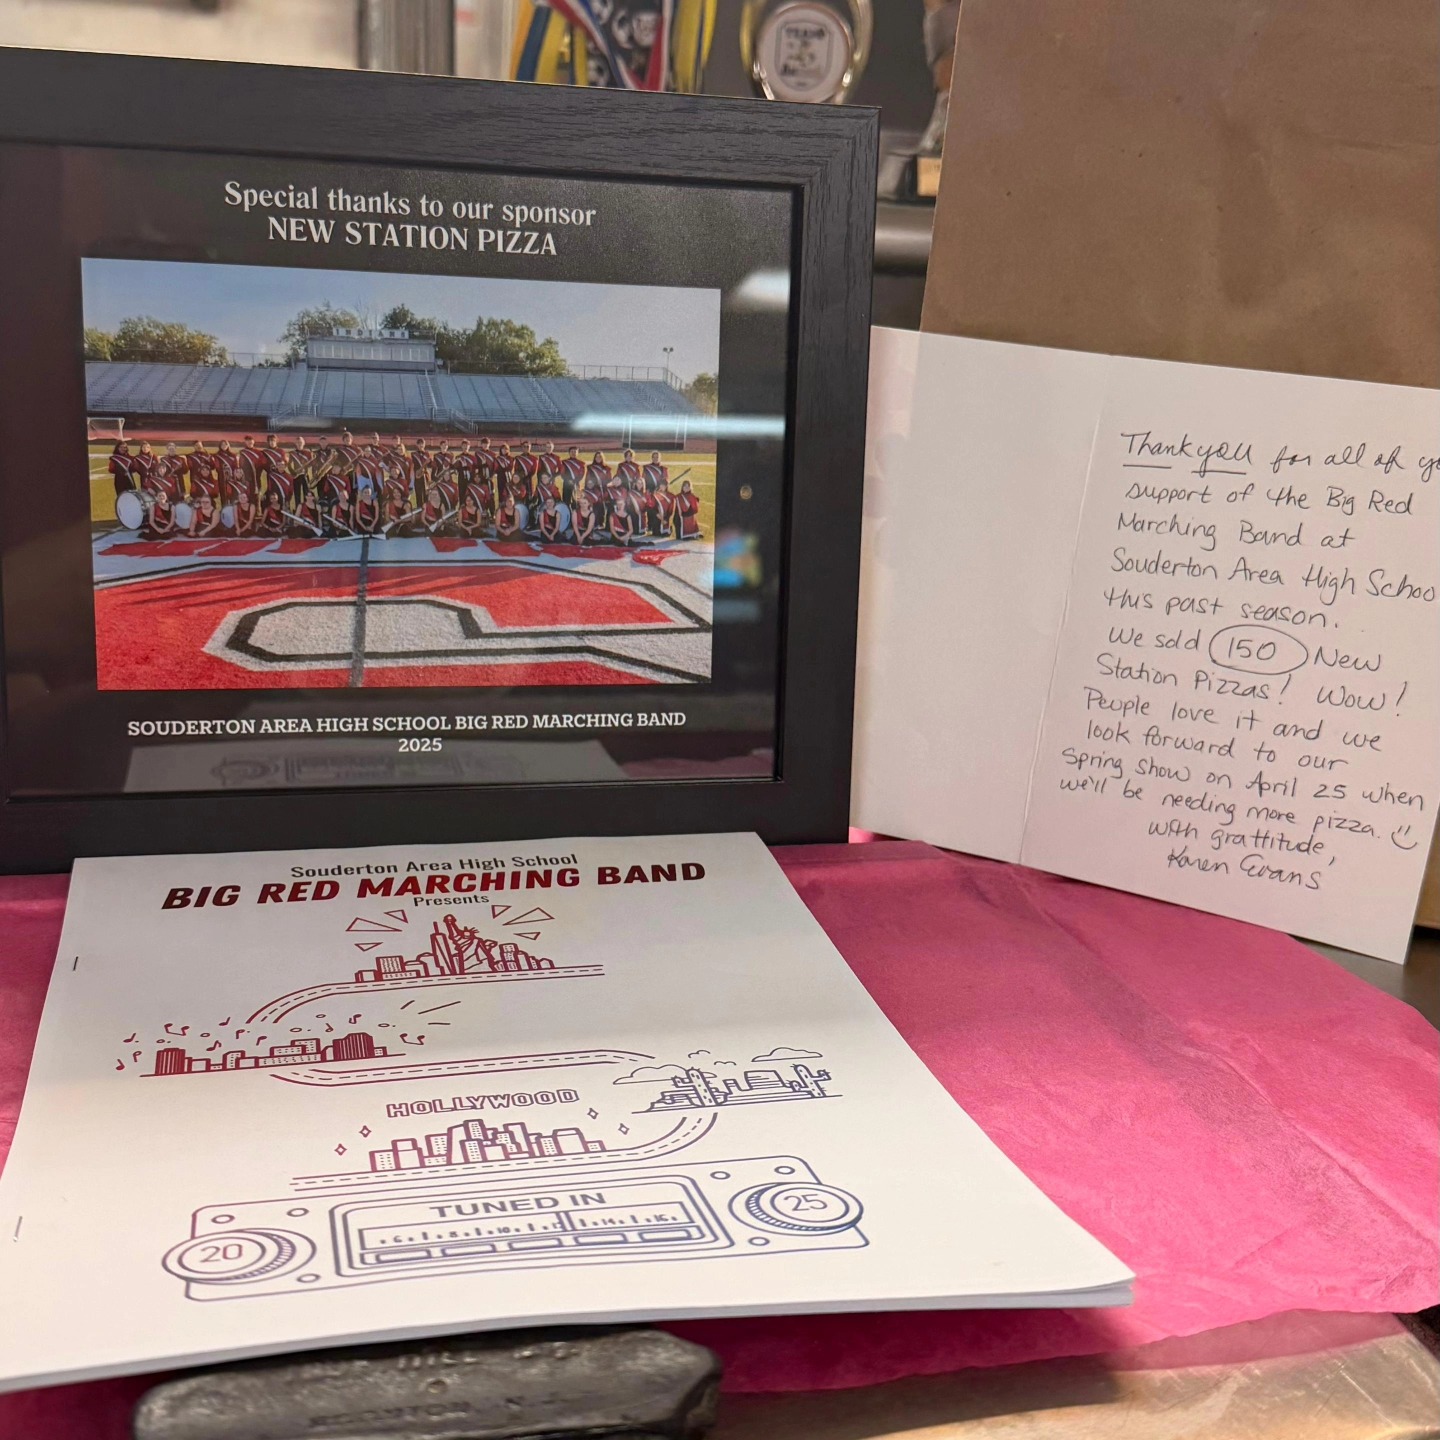 Special thanks to our sponsor
NEW STATION PIZZA
INDIANS
SOUDERTON AREA HIGH SCHOOL BIG RED MARCHING BAND
2025
Thank you for all of yo
support of the Big Red
Marching Band at
Souderton Area High Schoo
this past season.
We sold 150 New
Station Pizzas! Wow!
People love it and we
look forward to our
Spring Show on April 25 when
we'll be needing more pizza.
with grattitude,
Karen Evans
Souderton Area High School
BIG RED MARCHING BAND
Presents
HOLLYWOOD
TUNED IN
20
25